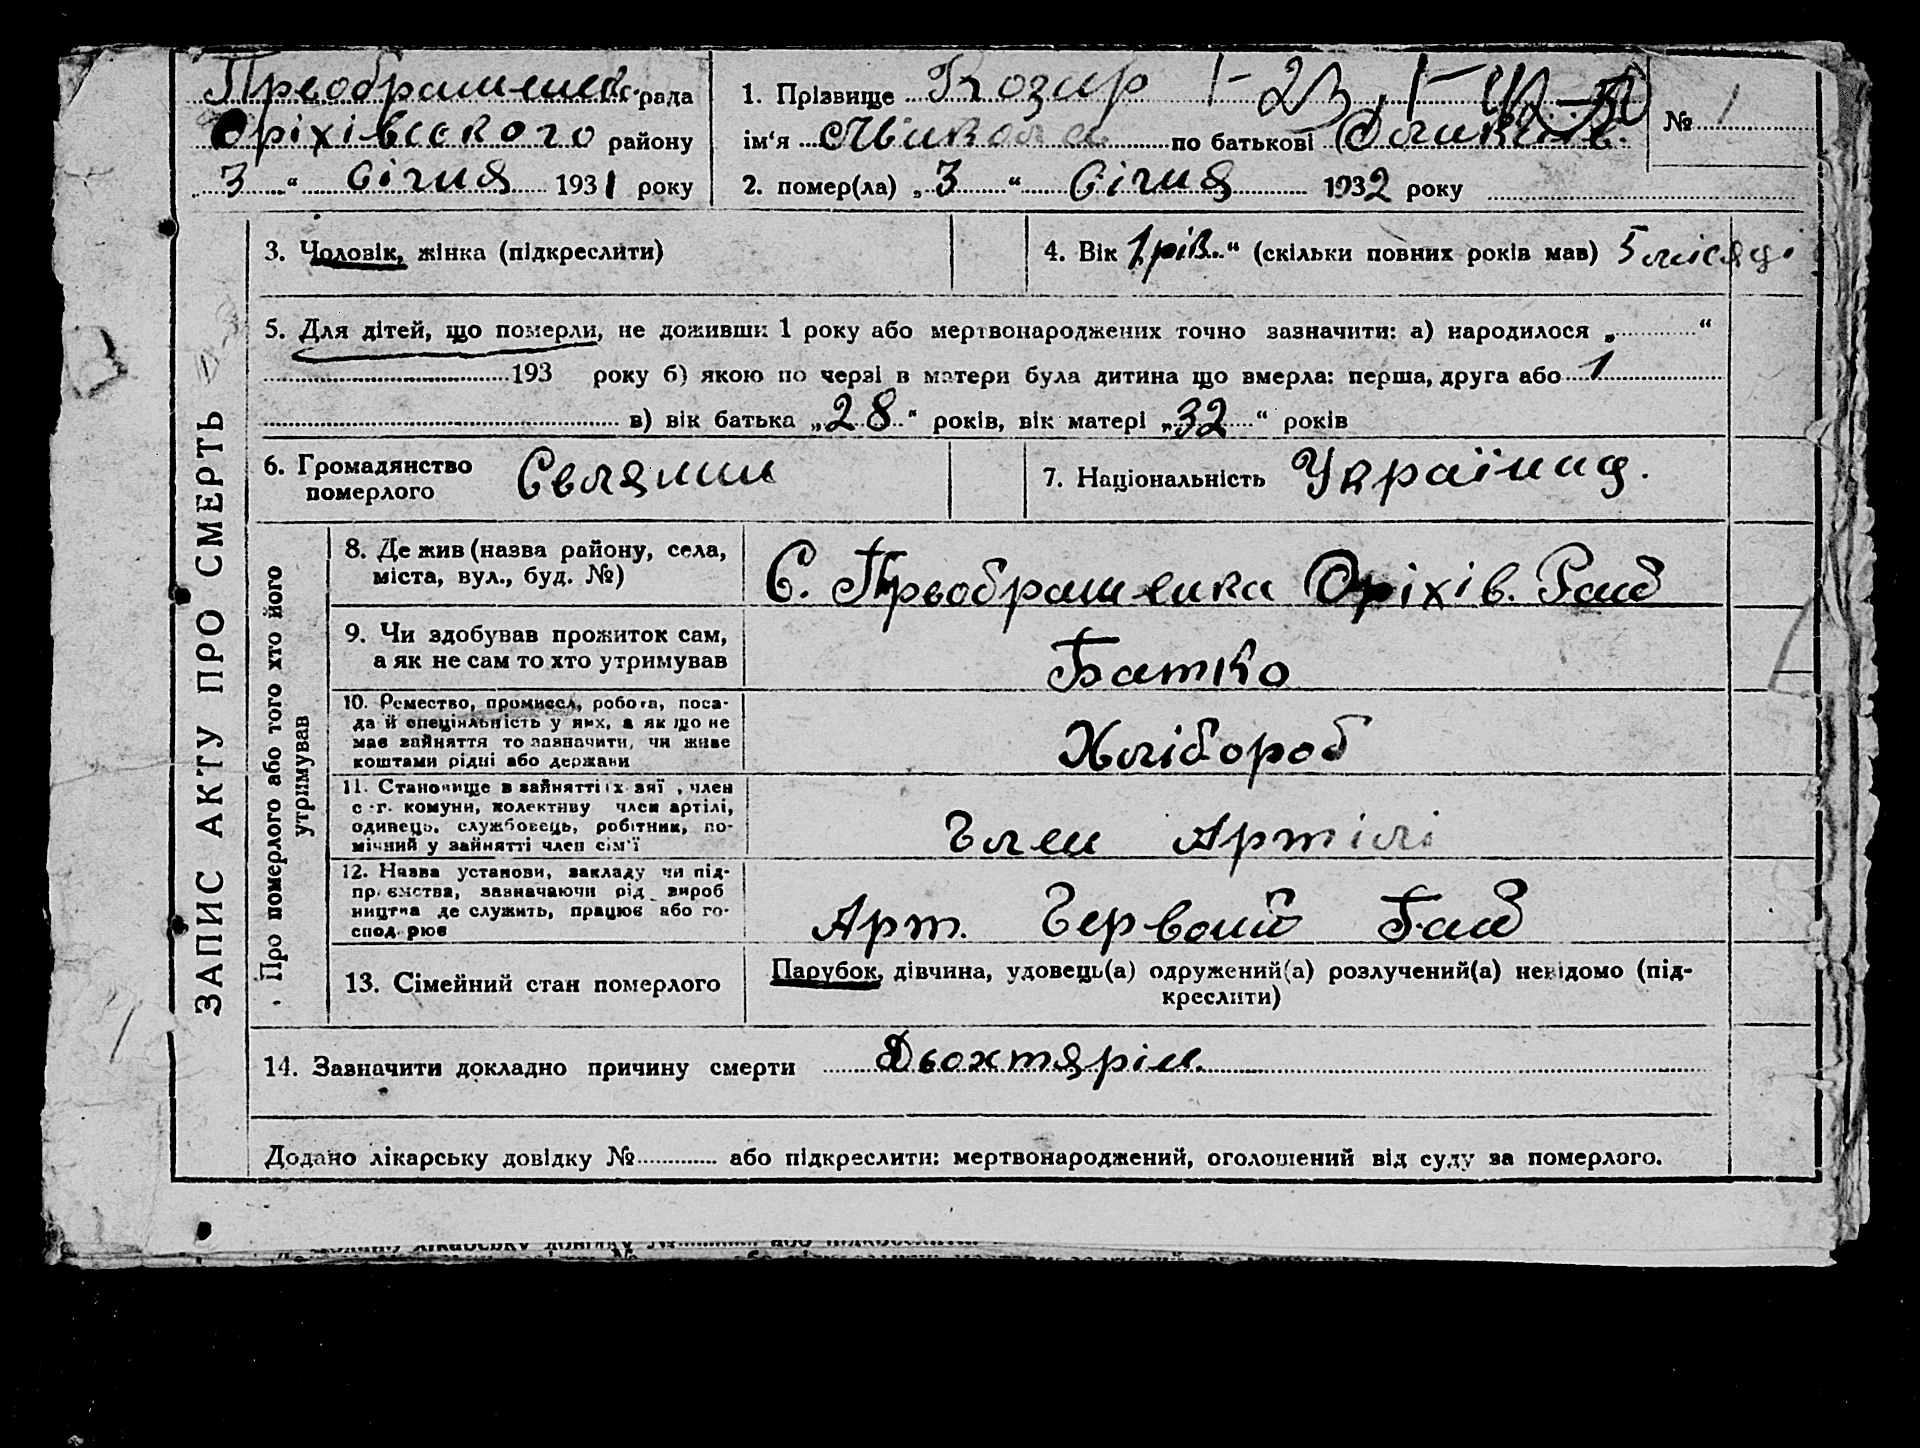 Преображенсь. рада
Оріхівського району
„3“ Січня 1931 року
1. Прізвище Козир
№ 1
ім‘я Микола по батькові
2. помер(ла) „3“ Січня 1932 року
3. Чоловік, жінка (підкреслити)
4. Вік 1 рів. “ (скільки повних років мав) 5 місяці
5. Для дітей, що померли, не доживши 1 року або мертвонароджених точно зазначити: а) народилося „ “
193 року б) якою по черзі в матери була дитина що вмерла: перша, друга або 1
в) вік батька „28“ років, вік матері „32“ років
6. Громадянство
померлого
Селянин
7. Національність Україния.
ЗАПИС АКТУ ПРО СМЕРТЬ
Про померлого або того хто його
утримував
8. Де жив (назва району, села,
міста, вул., буд. №)
С. Преображенка Оріхів. Рай
9. Чи здобував прожиток сам,
а як не сам то хто утримував
Батко
10. Ремество, промисел, робота, поса-
да й спеціяльність у них, а як що не
має зайняття то зазначити, чи живе
коштами рідні або держави
Хлібороб
11. Становище в зайнятті , член
с.-г. комуни, колективу член артілі,
одинець, службовець, робітник, по-
мічний у зайнятті член сім‘ї
Член Артілі
12. Назва установи, закладу чи під-
приємства, зазначаючи рід вироб
ництва де служить, працює або го-
сподарює
Арт. Червоний Гай
13. Сімейний стан померлого
Парубок, дівчина, удовець(а) одружений(а) розлучений(а) невідомо (під-
креслити)
14. Зазначити докладно причину смерти Дьохтярім
Додано лікарську довідку № або підкреслити: мертвонароджений, оголошений від суду за померлого.